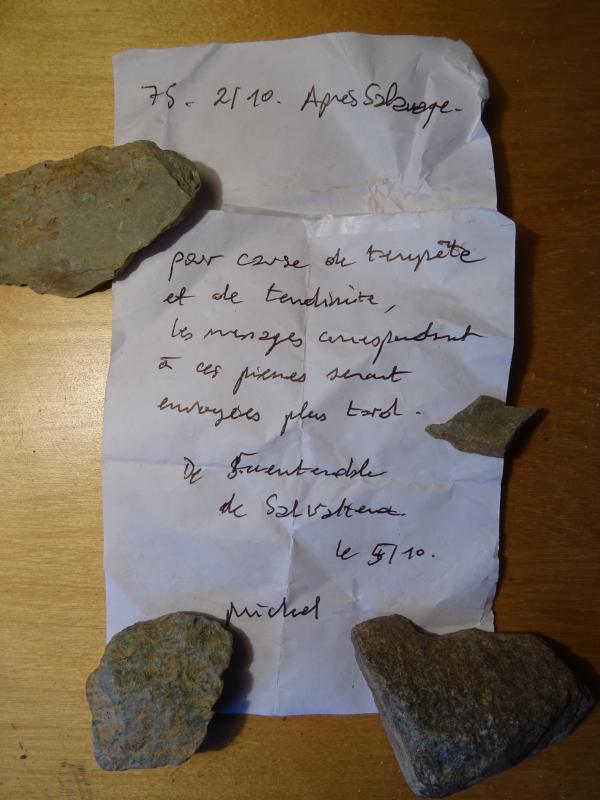 75 - 2/10. Après Salavage.
pour cause de tempête
et de tendinite,
les messages correspondant
à ces pierres seront
envoyées plus tard.
De Fuenteroble
de Salvatierra
le 5/10.
Michel